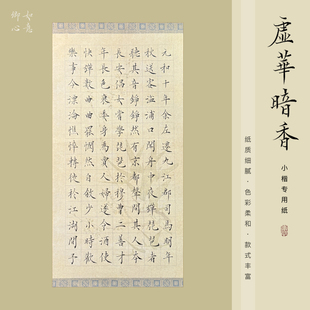 虚華暗香
小楷专用纸
纸质细腻·色彩柔和·款式丰富
元和十年余左遷九江郡司馬明年
秋送客湓浦口聞舟中夜彈琵琶者
聽其音錚錚然有京都聲問其人本
長安倡女嘗學琵琶於穆曹二善才
年長色衰委身為賈人婦遂命酒使
快彈數曲曲罷憫然自敘少小時歡
樂事今漂淪憔悴轉徙於江湖間予
如意
御心